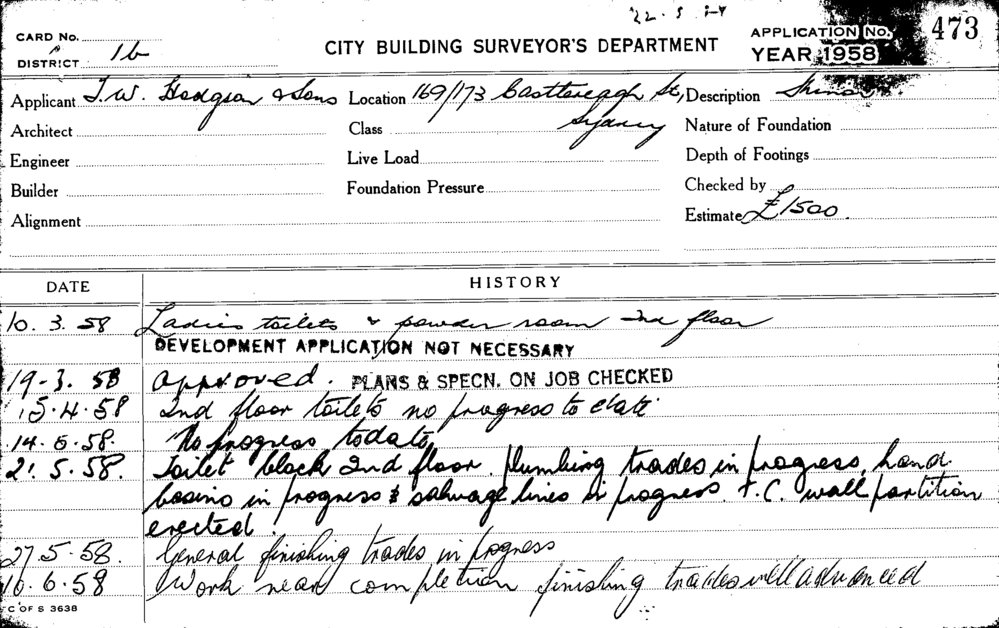 22. 5
CARD No.
DISTRICT 1b
CITY BUILDING SURVEYOR'S DEPARTMENT
APPLICATION No. 473
YEAR 1958
Applicant T.W. Hodgson & Sons Location 169/173 Castlereagh St, Description
Architect Class Sydney Nature of Foundation
Engineer Live Load Depth of Footings
Builder Foundation Pressure Checked by
Alignment Estimate £1500.
DATE HISTORY
10. 3. 58 Ladies toilets & powder room 2nd floor
DEVELOPMENT APPLICATION NOT NECESSARY
19-3. 58 approved. PLANS & SPECN. ON JOB CHECKED
15.4.58 2nd floor toilets no progress to date
14.5.58. No progress to date
21.5.58. Toilet block 2nd floor. Plumbing trades in progress, hand
basins in progress & in progress. F.C. wall partition
erected.
27.5.58. General finishing trades in progress
10.6.58 Work near completion finishing trades well advanced
C OF S 3638